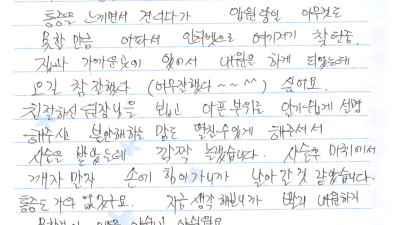 통증을 느끼면서 견디다가 입원 당일 아무것도
못할 만큼 아파서 인터넷으로 여기저기 찾던중
집과 가까운 곳이 있어서 내원을 하게 되었는데
오길 참 잘했다 (아무잘했다 ~ ~ ^^) 싶어요.
친절하신 원장님을 뵙고 아픈 부위를 알기쉽게 설명
해주시고 불안해하는 맘도 떨칠수 있게 해주셔서
시술을 받았는데 깜짝 놀랬습니다. 시술후 마취에서
깨자 말자 손에 힘이 가니까 날아갈 것 같았습니다.
통증도 거의 없었구요. 지금 생각해보니까 빨리 내원하지